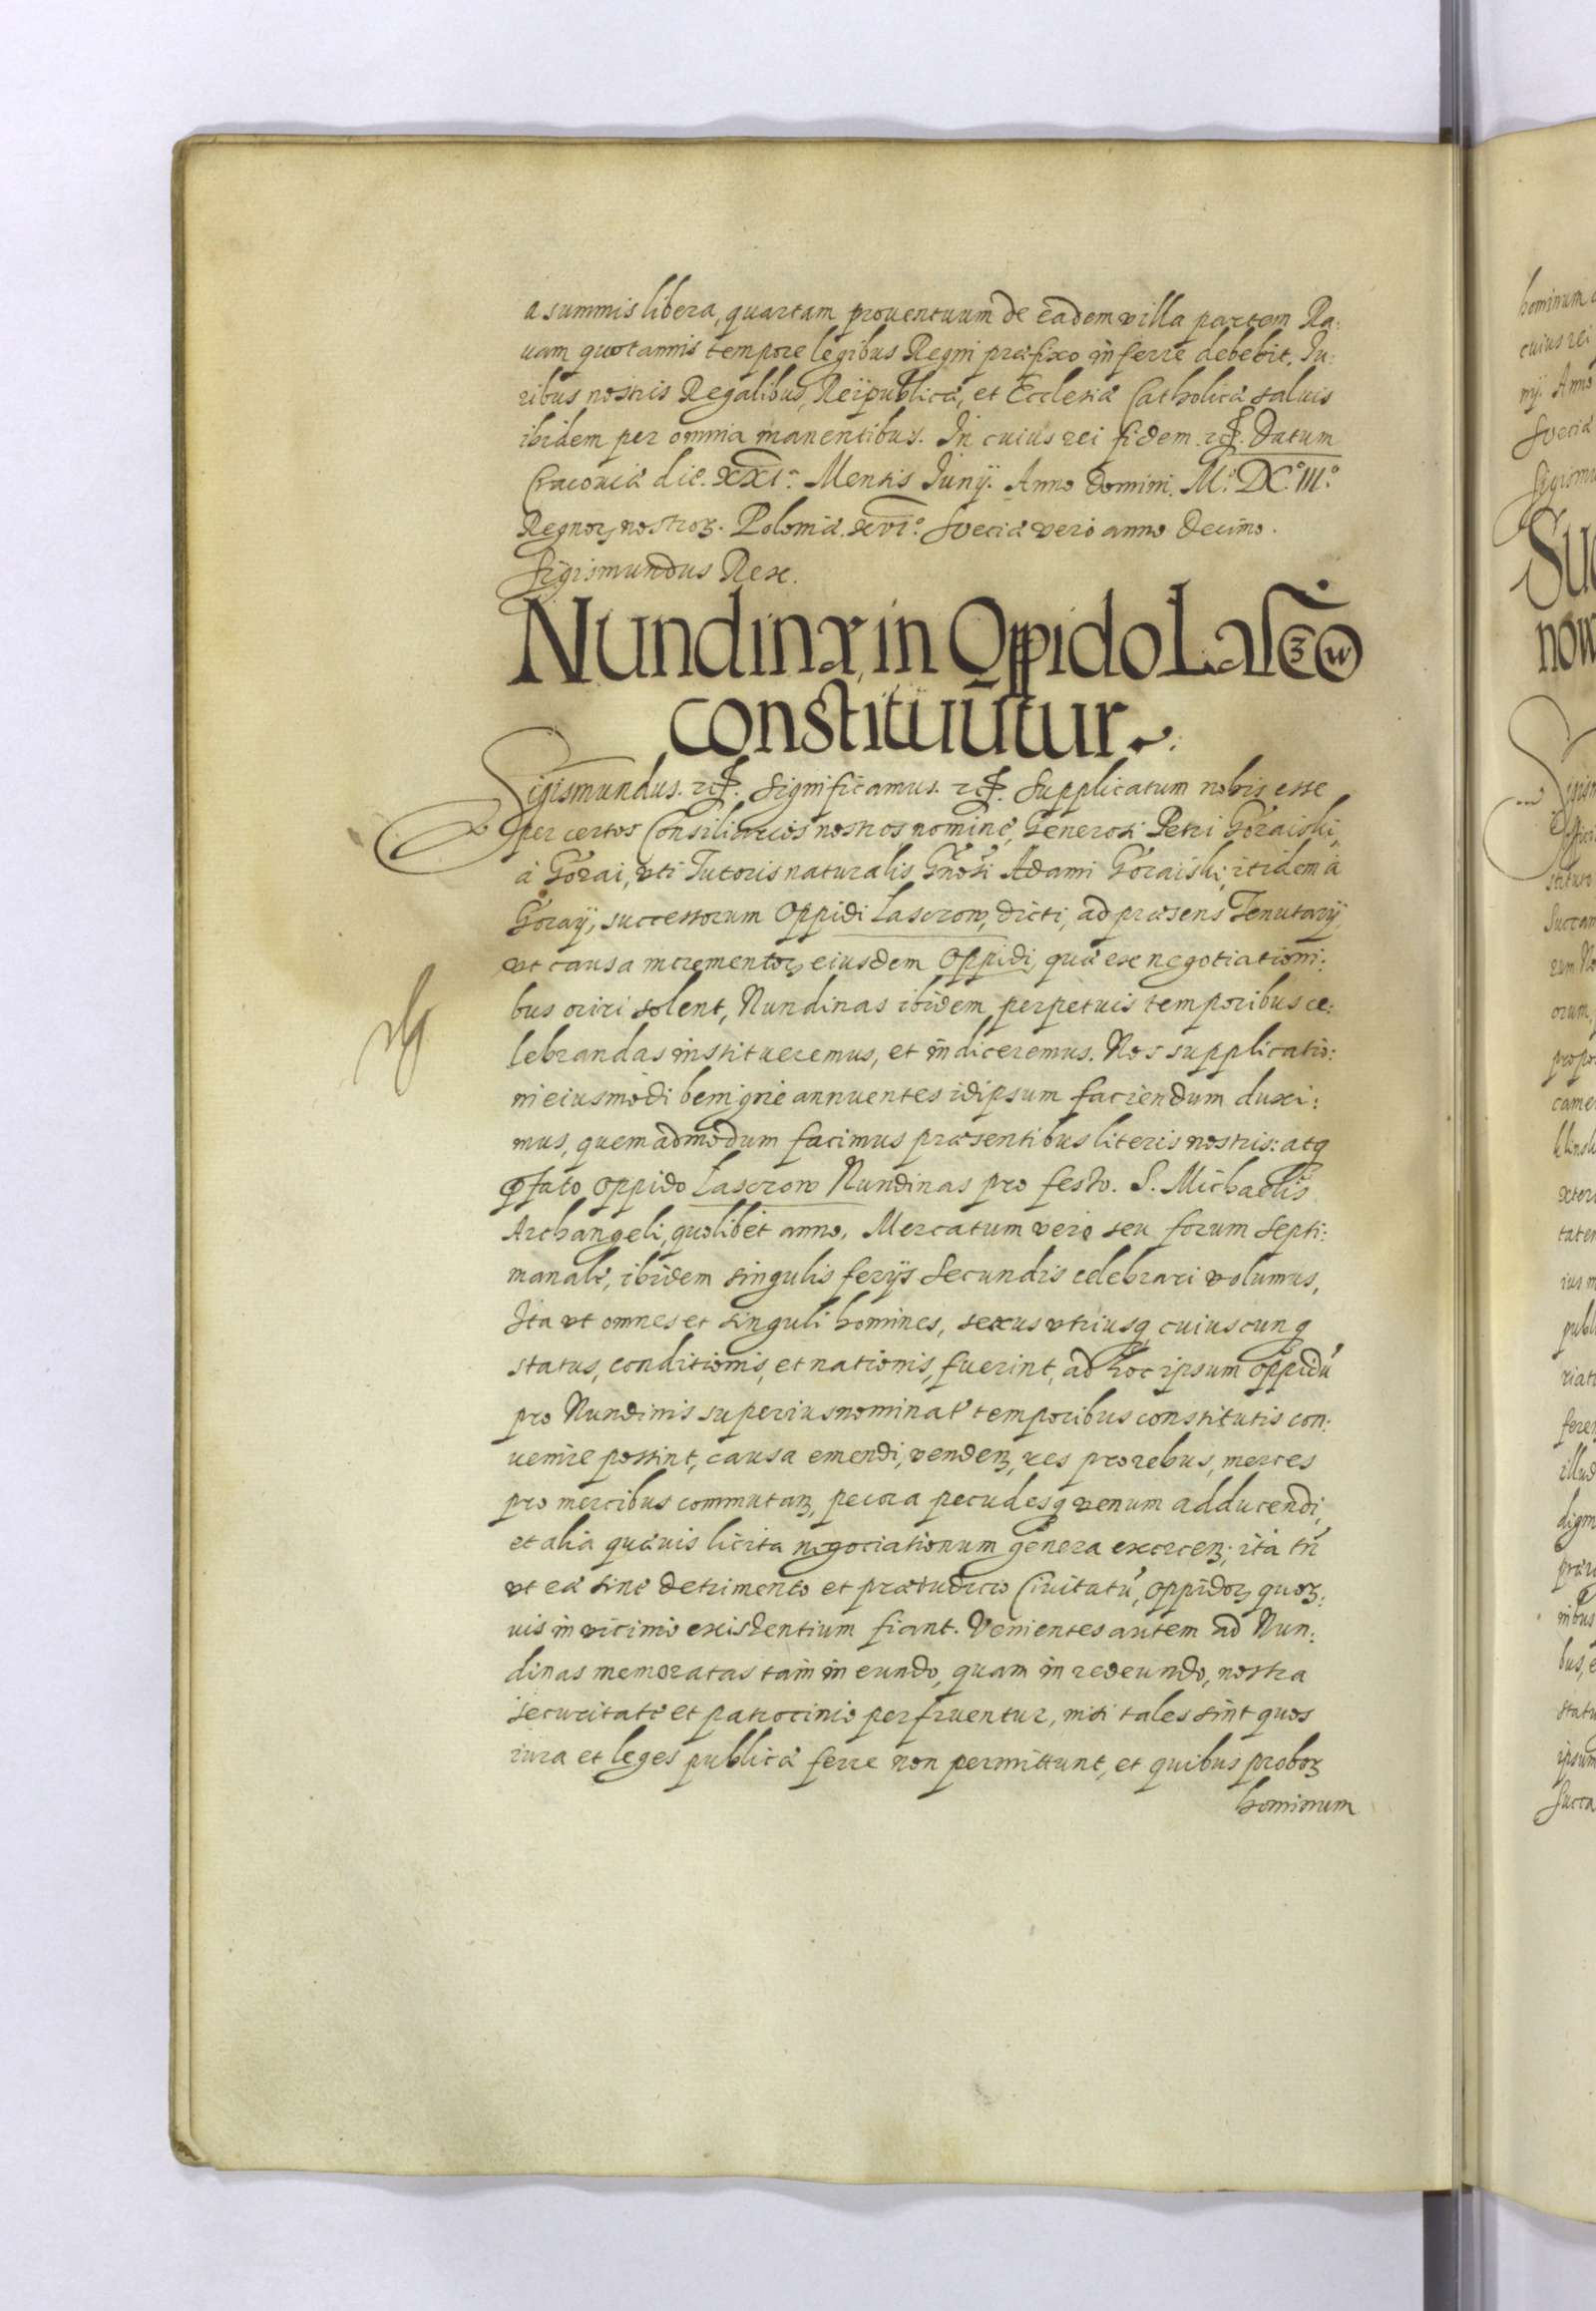 a summis libera, quartam prouentuum de eadem villa partem Ra:
uam quotannis tempore legibus Regni præfixo inferre debebit. Iu:
ribus nostris Regalibus, Reipublicæ, et Ecclesiæ Catholicæ saluis
ibidem per omnia manentibus. In cuius rei fidem etc. Datum
Cracouiæ die. XXI.ᵃ Mensis Iunij. Anno Domini. M.° DC.° III.°
Regnoꝝ nostroꝝ. Poloniæ. XVI.° Sueciæ vero anno decimo.
Sigismundus Rex.
Nundinæ in Oppido Lasczow
constituūtur.
Sigismundus. etc. Significamus. etc. Supplicatum nobis esse
per certos Consiliarios nostros nomine, Generosi Petri Goraiski,
à Gorai, vti Tutoris naturalis Gñosi Adami Goraiski, itidem à
Goraÿ, successorum Oppidi Lasczow, dicti, ad præsens Tenutarij,
vt causa incrementoꝝ eiusdem Oppidi, quæ ex negotiationi:
bus oriri solent, Nundinas ibidem perpetuis temporibus ce:
lebrandas institueremus, et indiceremus. Nos supplicatio:
ni eiusmodi benigne annuentes idipsum faciendum duxi:
mus, quemadmodum facimus præsentibus literis nostris: atq
ꝓfato Oppido Lasczow Nundinas pro festo. S. Michaelis
Archangeli, quolibet anno, Mercatum vero seu forum septi:
manale, ibidem singulis ferijs secundis celebrari volumus,
Ita vt omnes et singuli homines, sexus vtriusq, cuiuscunq
status, conditionis, et nationis, fuerint, ad hoc ipsum oppidū
pro Nundinis superius nominat' temporibus constitutis con:
uenire possint, causa emendi, vendenꝫ, res pro rebus, merces
pro mercibus commutanꝫ, pecora pecudesq venum adducendi,
et alia quæuis licita negociationum genera exercenꝫ, ita tñ
vt eæ sine detrimento et præiudicio Ciuitatū, oppidoꝝ quoꝝ:
uis in vicinio existentium fiant. Venientes autem ad Nun:
dinas memoratas tam in eundo, quam in redeundo, nostra
securitate et patrocinio perfruentur, nisi tales sint quos
iura et leges publicæ ferre non permittunt, et quibus proboꝝ
hominum